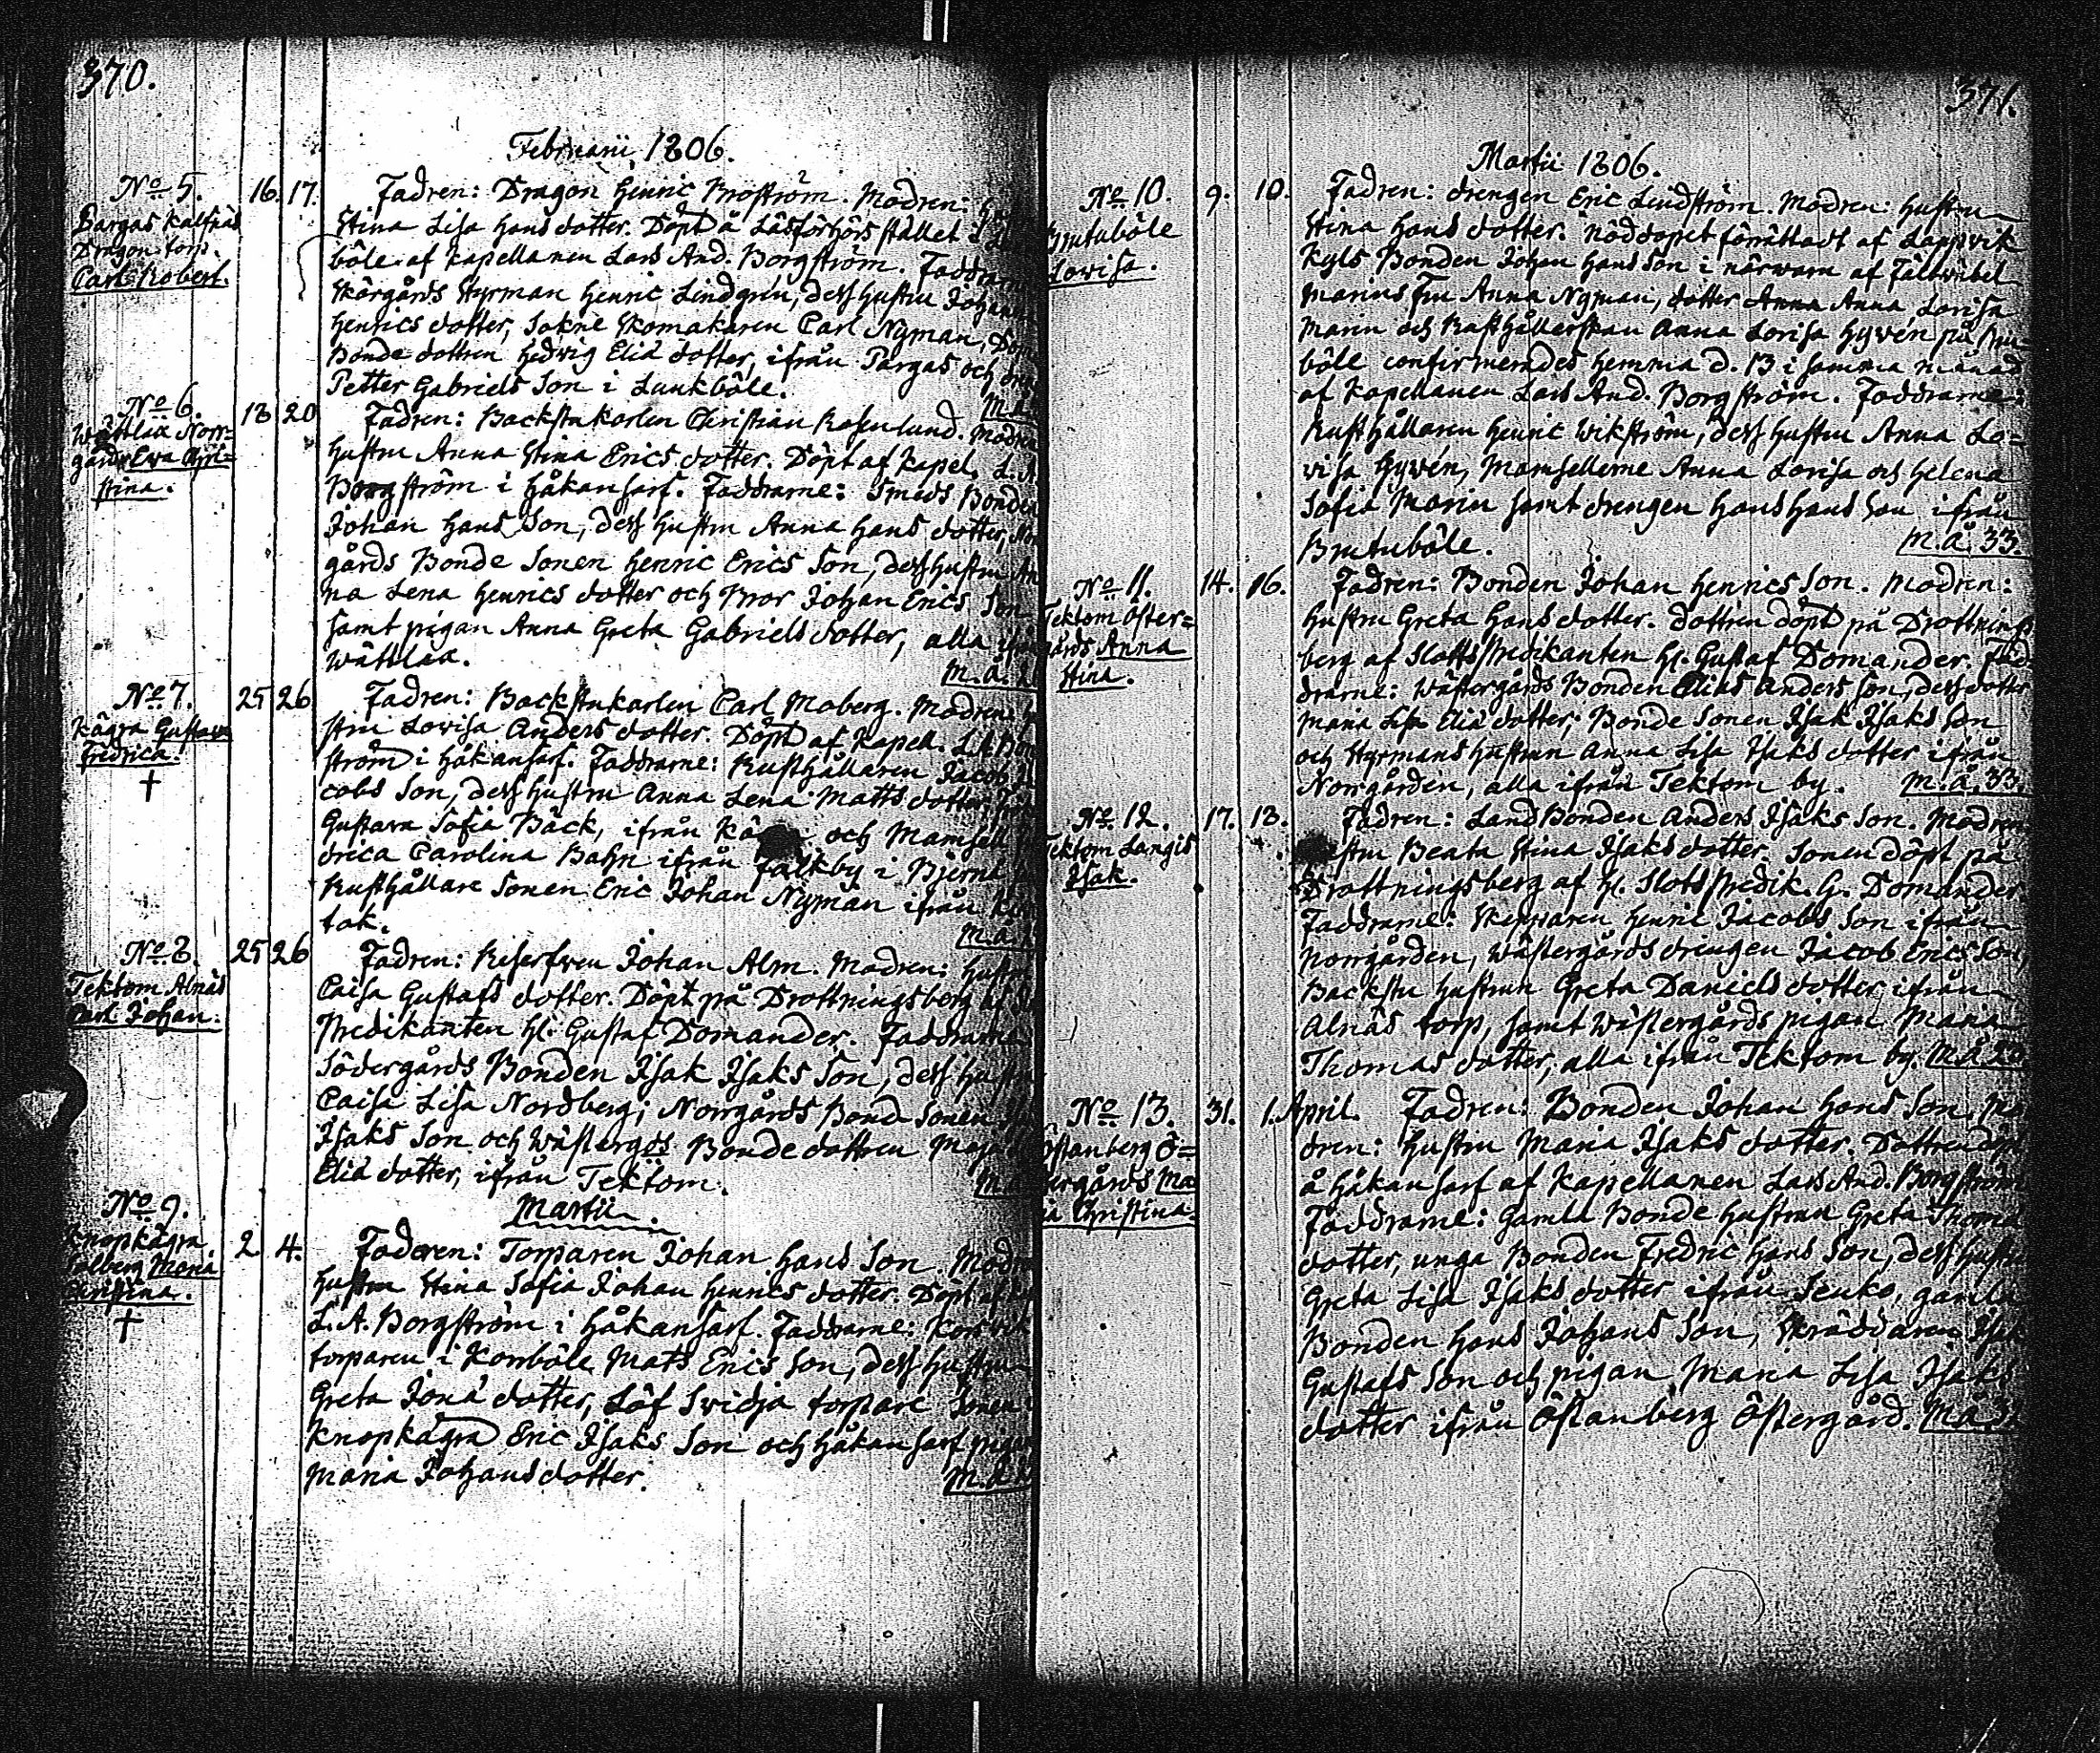 370.
Februarii 1806.
No 5. 16. 17. Fadren: Dragon Henric Broström. Modren:
Pargas Kalfnäs Stina Lisa Hans dotter. Döpt å Läsförhörs stället i
Dragons torp. böle af Kapellanen Lars And. Borgström. Faddrarne
Carl Robert. Skärgårds Styrman Henric Lindgrén, dess hustru Johanna
Henrics dotter, Sokne Skomakaren Carl Nyman,
Bonde dottren Hedvig Eliæ dotter, ifrån Pargas och
Petter Gabriels Son i Lunkböle.
No 6. 18 20 Fadren: Backstukarlen Christian Rosenlund. Modren
Wättlax Norr=
gårds Ewa Chri= Hustru Anna Stina Erics dotter. Döpt af Kapel. L. A.
stina. Borgström i Håkansarf. Faddrarne: Smeds Bonden
Johan Hans Son, dess Hustru Anna Hans dotter,
gårds Bonde Sonen Henric Erics Son, dess hustru An
na Lena Henrics dotter och Bror Johan Erics Son
samt pigan Anna Greta Gabriels dotter, alla ifrån
Wättlax. M.å.
No 7. 25 26 Fadren: Backstukarlen Carl Moberg. Modren:
Kågra Gustava stru Lovisa Anders dotter. Döpt af Kapell. L.A. Borg
Fredrica. ström i Håkansarf. Faddrarne: Rusthållaren Jacob
† cobs Son, dess hustru Anna Lena Matts dotter,
Gustava Sofia Bäck, ifrån och Mamsell
drica Carolina Bahn ifrån Falkby i Bjerno
Rusthållare Sonen Eric Johan Nyman ifrån
tak. M.å.
No 8. 25 26 Fadren: Reserfven Johan Alm. Modren: Hustru
Tektom Alnäs Caisa Gustafs dotter. Döpt på Drottningsberg af
Carl Johan. Predikanten H. Gustaf Domander. Faddrarne
Södergårds Bonden Isak Isaks Son, dess hustru
Caisa Lisa Nordberg; Norrgårds Bond Sonen
Isaks Son och Wästergds Bonde dottren Maja
Eliæ dotter, ifrån Tektom.
Martii.
No 9. 2 4. Faderen: Torparen Johan Hans Son. Modren
Knopkågra
Maria Hustru Stina Sofia Johan Henrics dotter. Döpt af
Christina. L. A. Borgström i Håkansarf. Faddrarne:
† torparen i Korrböle Mats Erics Son, dess hustru
Greta Jonæ dotter, Löf Svidja torpare Sonen
Knopkågra Eric Isaks Son och Håkansarf pigan
Maria Johans dotter. M.å.
371.
Martii 1806.
No 10. 9. 10. Fadren: drengen Eric Lindström. Modren: Hustru
Brutuböle Stina Hans dotter. Nöddopet förrättadt af Lappvik
Lovisa. Kyls Bonden Johan Hans Son i närwaro af Fältwäbel
Marins Fru Anna Nyman, dotter Anna Anna Lovisa
Marin och Rusthållerskan Anna Lovisa Hyvén på Bru
böle confirmerades hemma d. 13 i samma månad
af Kapellanen Lars And. Borgström. Faddrarne:
Rusthållaren Henric Wikström, dess hustru Anna Lo=
visa Hyvén, Mamsellerne Anna Lovisa och Helena
Sofia Marin samt drengen Hans Hans Son ifrån
Brutuböle. M.å. 33.
No 11. 14. 16. Fadren: Bonden Johan Henrics Son. Modren:
Tektom Öster= Hustru Greta Hans dotter. Dottren döpt på Drottnings
gårds Anna berg af Slotts Predikanten H. Gustaf Domander. Fad=
Stina. drarne: Wästergårds Bonden Elias Anders Son, dess dotter
Maria Lisa Eliæ dotter; Bonde Sonen Isak Isaks Son
och Styrmans hustrun Anna Lisa Isaks dotter ifrån
Norrgården, alla ifrån Tektom by. M.å. 33.
No 12. 17. 18. Fadren: Land Bonden Anders Isaks Son. Modren
Tektom Langis Beata Stina Isaks dotter. Sonen döpt på
Isak. Drottningsberg af H. Slots Predik. G. Domander
Faddrarne: Skepparen Henric Jacobs Son ifrån
Norrgården, Wästergårds drengen Jacob Erics Son,
Backstu hustrun Greta Daniels dotter ifrån
Alnäs torp, samt Wästergårds pigan Maria
Thomas dotter, alla ifrån Tektom by. M.å.
No 13. 31. 1. April. Fadren: Bonden Johan Hans Son. Mo
Östanberg Ö= dren: Hustru Maria Isaks dotter. Dottren döpt
stergårds Ma å Håkansarf af Kapellanen Lars And. Borgström
ia Christina. Faddrarne: Gamla Bonde hustrun Greta Thomæ
dotter, unga Bonden Fredric Hans Son, dess hustru
Greta Lisa Isaks dotter ifrån Jeuko, gamla
Bonden Hans Johans Son, Skräddaren Isak
Gustafs Son och pigan Maria Lisa Isaks
dotter ifrån Östanberg Östergård. M.å.